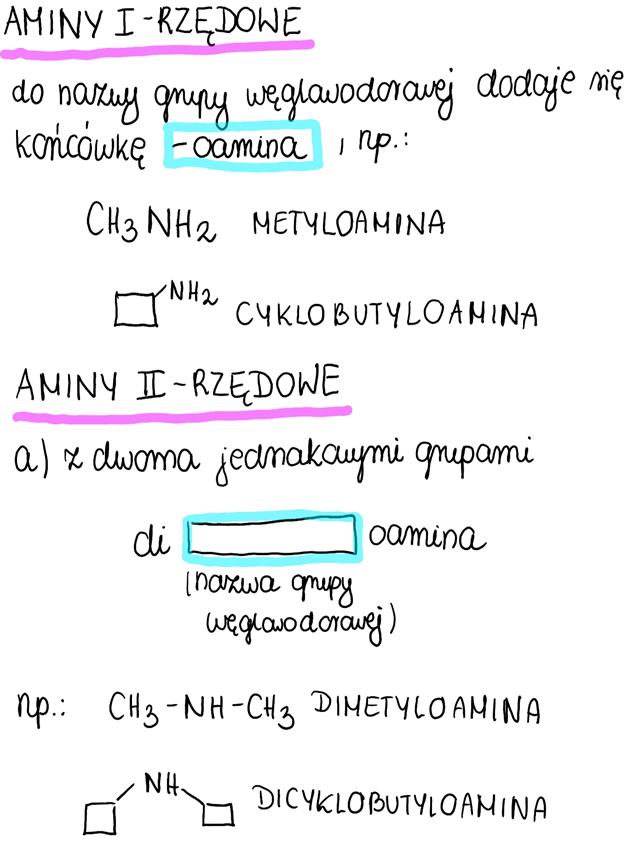 AMINY I-RZĘDOWE
do nazwy grupy węglowodorowej dodaje się
końcówkę -oamina, np.:
CH3NH2 METYLOAMINA
NH2 CYKLOBUTYLOAMINA
AMINY II-RZĘDOWE
a) z dwoma jednakowymi grupami
di oamina
(nazwa grupy
węglowodorowej)
np.: CH3-NH-CH3 DIMETYLOAMINA
NH DICYKLOBUTYLOAMINA